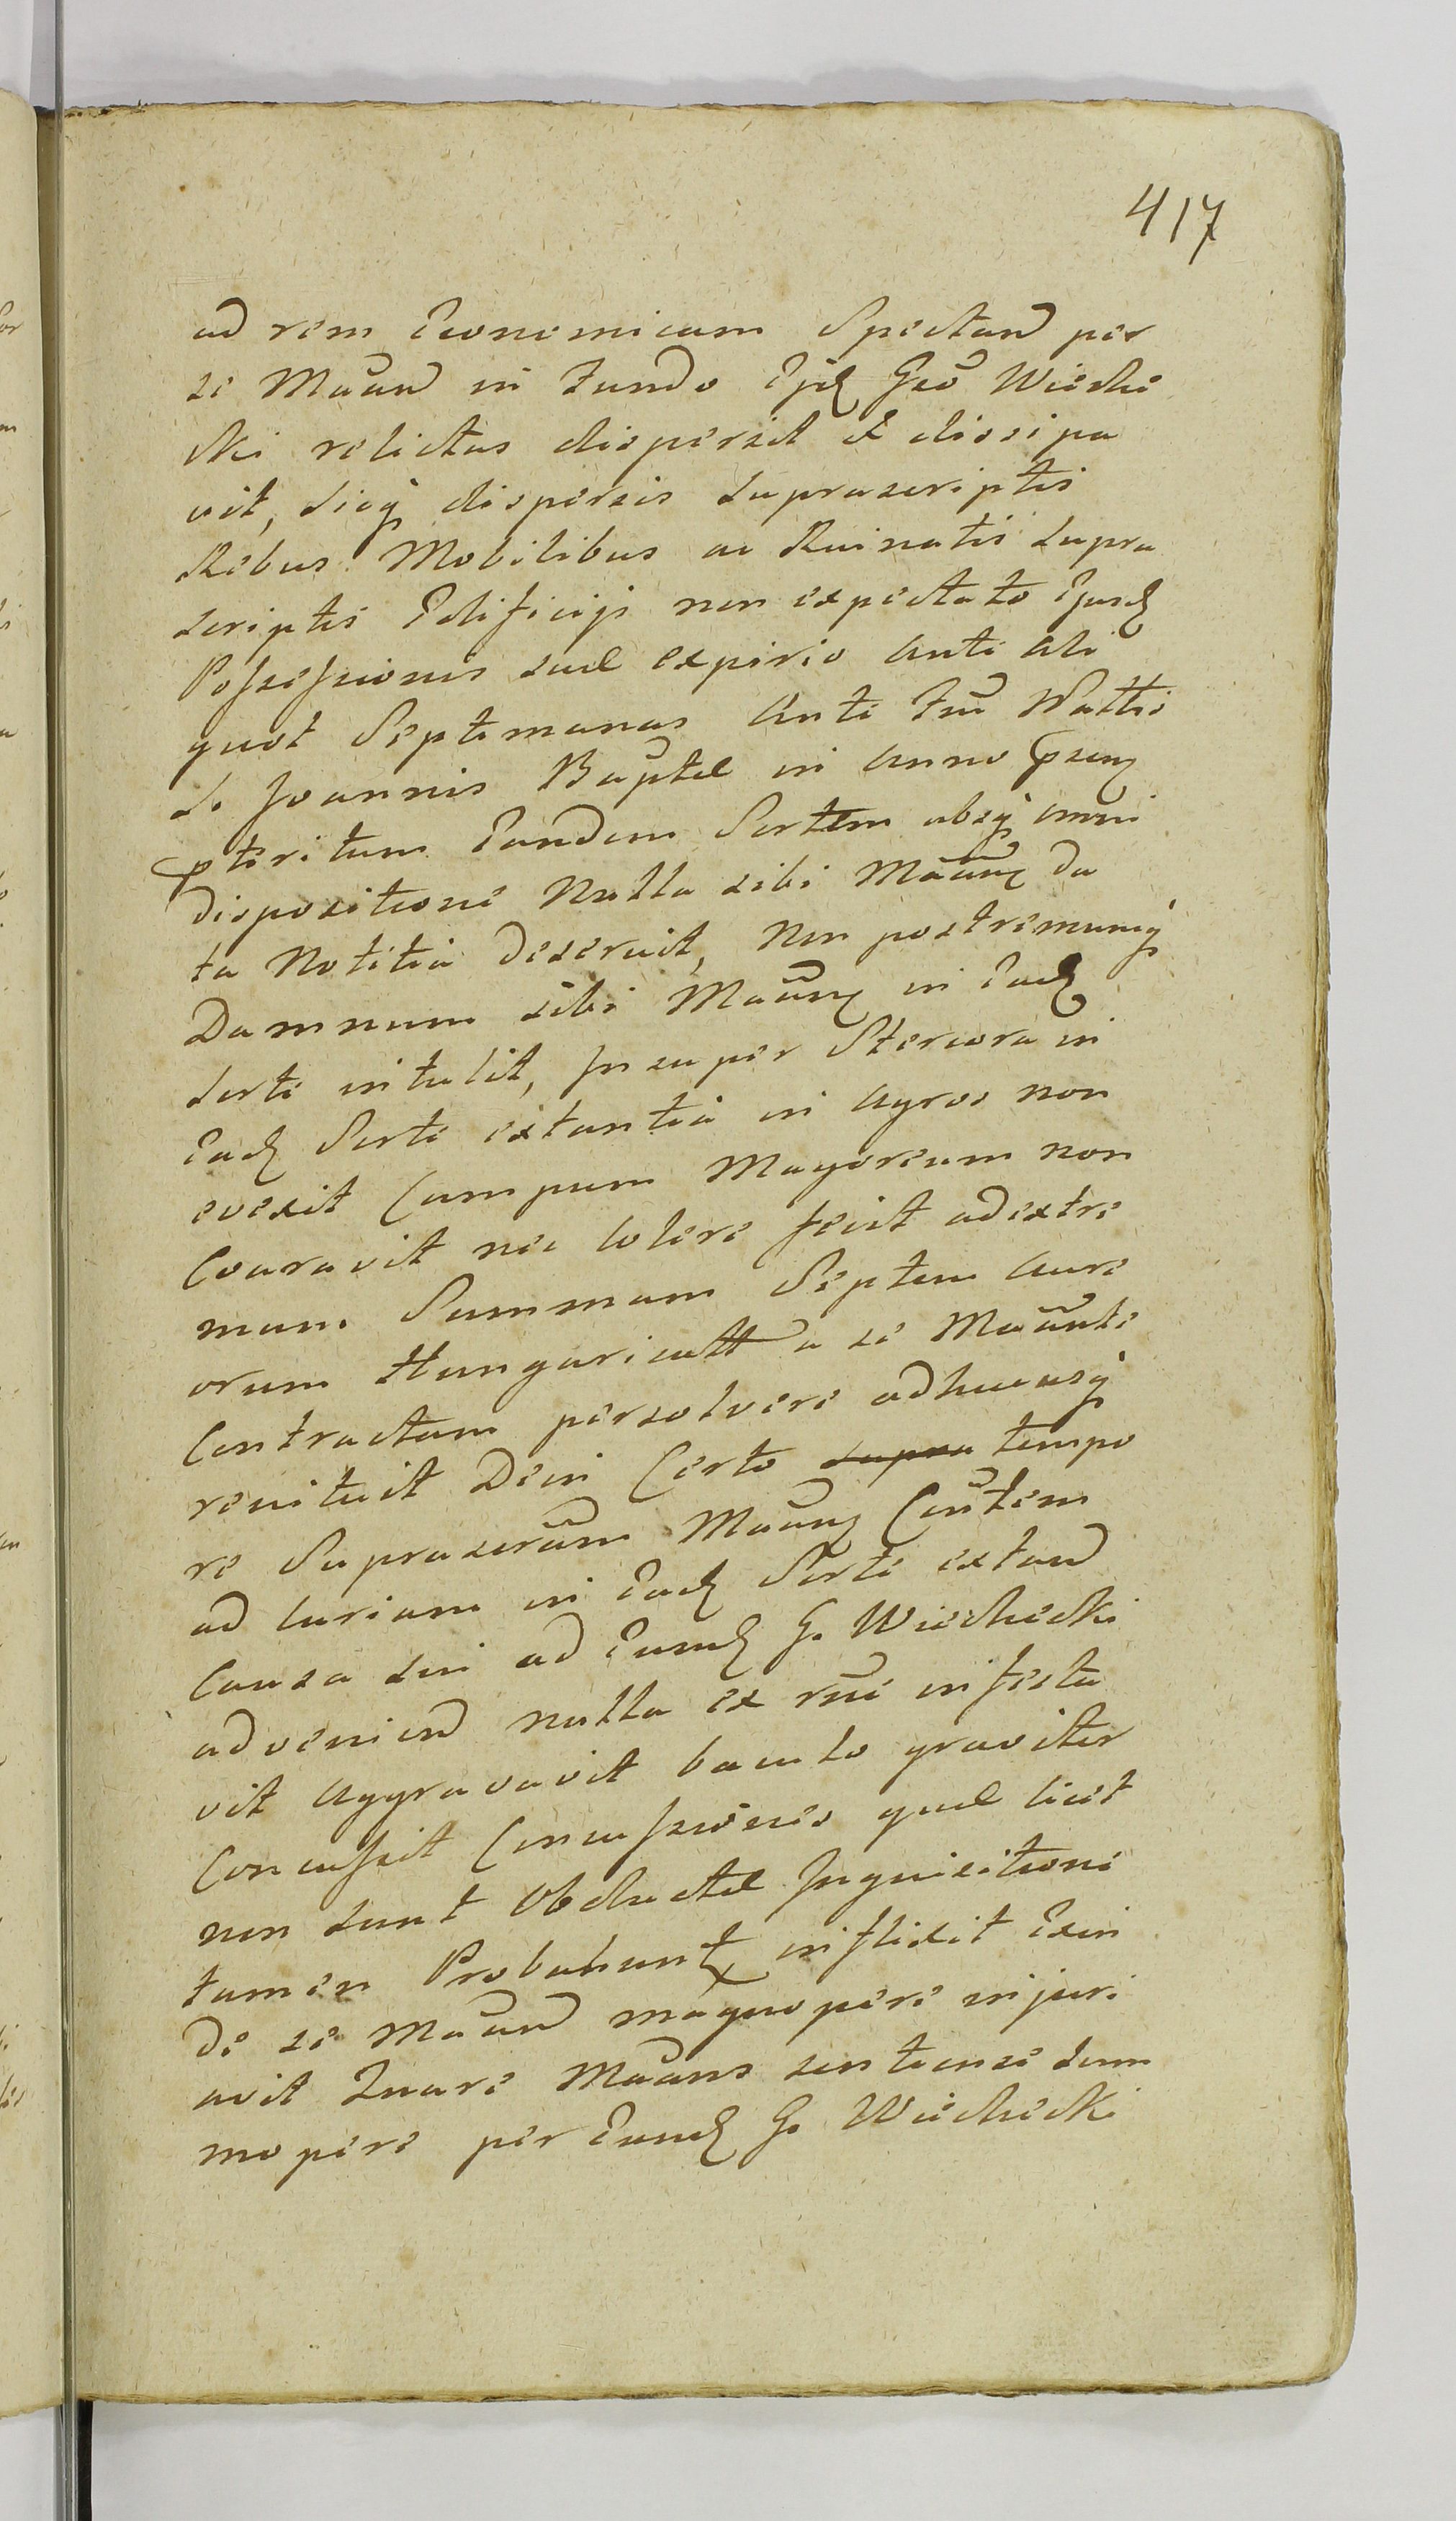 417
ad rem Economicam Spectand per
se Maand in Fundo Ejd Gro Wieche
cki relictas dispersit et dissipa
vit, sicq dispersis suprascriptis
Rebus Mobilibus ac Ruinatis supra
scriptis Edificijs non expectato Ejusd
Possessionis suae expirio Ante Ali
quot Septimanas Ante Fm Nattis
S. Joannis Baptae in Anno prsenq
pteritum Eandem Sortem absq omni
dispositione Nulla sibi Maanq da
ta Notitia deseruit, Non postremumq
Damnum sibi Maanq in Ead
Sorte intulit, Insuper Stercora in
Ead Sorte extantia in Agros non
evexit Campum Magoreum non
Couravit nec Colere fecit ad extre
mum Summam Septem Aure
orum Hungaricatt a se Maante
Contractam persolvere adhucusq
renituit Dein Certo supra tempo
re Suprascram Maanq Cautem
ad Curiam in Ead Sorte extand
Causa sui ad Eund G. Wiechecki
adveniend nulla ex rne infesta
vit Aggravavit baculo graviter
Concussit Concussiones quae licet
non sunt Obductae Inquisitione
tamen Probabunt inflixit Exin
de se Maand magnopere injuri
avit Quare Maans sentiens se sum
mopere per Eund G. Wiechecki